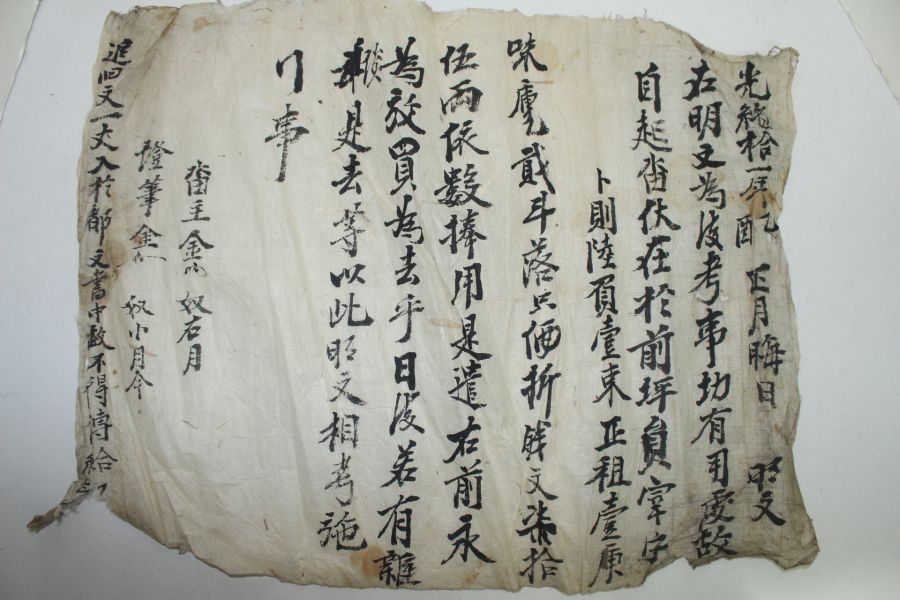 光緒拾一年乙酉 正月晦日 明文
右明文為後考事切有用處故
自起畓伏在於前坪員宰字
卜則陸負壹束正租壹
味庫貳斗落只価折錢文柒拾
伍兩依數捧用是遣右前永
為放買為去乎日後若有雜
談是去等以此明文相考施
行事
畓主金 奴右月
證筆金 奴小月金
追旧文一丈入於都文書中故不得傳給